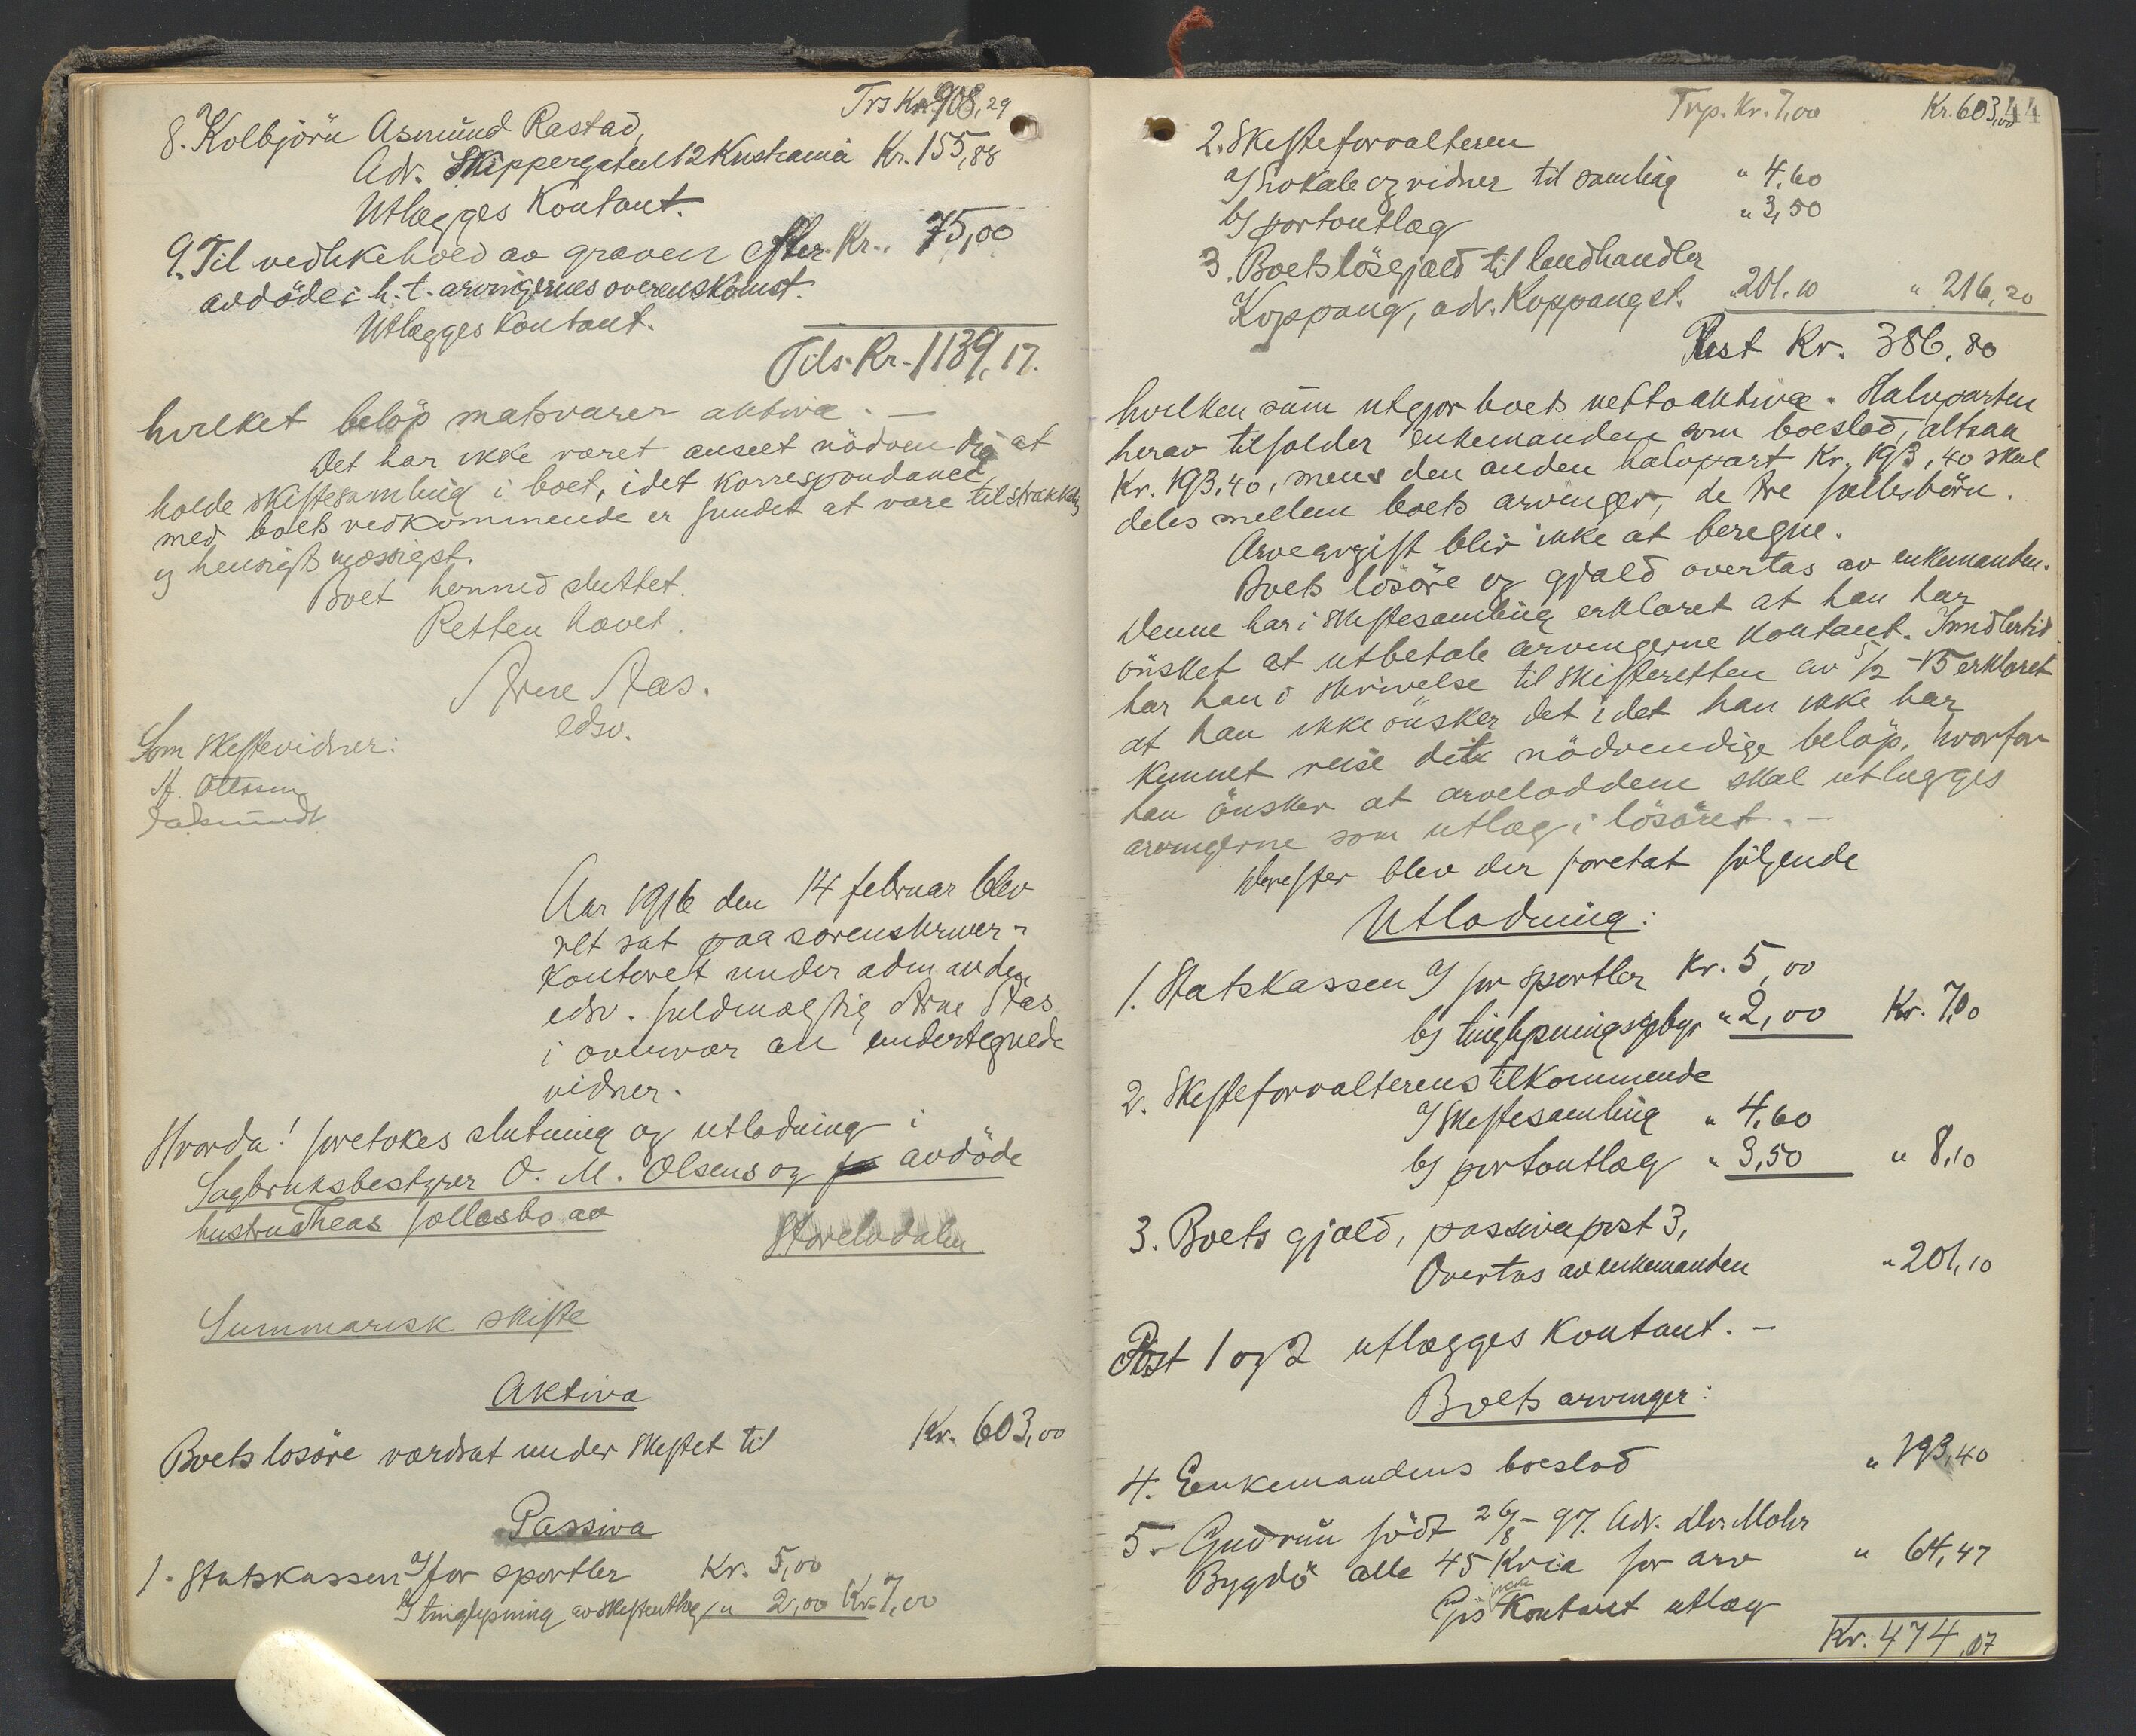 Trs Kr. 908,29
8. Kolbjörn Asmund Rastad,
Adr. Skippergaten 12 Kristiania Kr. 155,88
Utlægges Kontant.
9. Til vedlikehold av graven efter Kr. 75,00
avdöde i h.t. arvingernes overenskomst.
Utlægges Kontant.
Tils. Kr. 1139,17.
hvilket belöp motsvarer aktiva. —
Det har ikke været anseet nödvendig at
holde skiftesamling i boet, idet korrespondance
med boets vedkommende er fundet at være tilstrækkelig
og hensigtsmæssigst.
Boet hermed sluttet.
Retten hævet.
Arne Aas.
edsv.
Som skiftevidner:
Aar 1916 den 14 februar blev
ret sat paa sorenskriver-
kontoret under adm av den
edsv. fuldmægtig Arne Aas
i overvær av undertegnede
vidner.
Hvorda! foretokes slutning og utlodning i
Sagbruksbestyrer O. M. Olsens og avdöde
hustru Theas fællesbo av
Storelvdalen
Summarisk skifte
Aktiva
Boets lösöre værdsat under skiftet til Kr. 603,00
Passiva
1. Statskassen a/ for sportler Kr. 5,00
b/ tinglysning av skifteutlæg " 2,00 Kr. 7,00
Trp. Kr. 7,00 Kr. 603,00 44
2. Skifteforvalteren
a/ Lokale og vidner til samling " 4,60
b/ portoutlæg " 3,50
3. Boets lösegjæld til landhandler
Koppang, adr. Koppang st. " 201,10 " 216,20
Rest Kr. 386,80
hvilken sum utgjør boets nettoaktiva. Halvparten
herav tilfalder enkemanden som boeslod, altsaa
Kr. 193,40, mens den anden halvpart Kr. 193,40 skal
deles mellem boets arvinger, de tre fællesbörn.
Arveavgift blir ikke at beregne.
Boets lösöre og gjæld overtas av enkemanden.
Denne har i skiftesamling erklæret at han har
önsket at utbetale arvingerne kontant. Imidlertid
har han i skrivelse til skifteretten av 5/2 - 15 erklæret
at han ikke önsker det idet han ikke har
kunnet reise det nödvendige belöp, hvorfor
han önsker at arveloddene skal utlægges
arvingerne som utlæg i lösöret. —
Derefter blev der foretat fölgende
Utlodning:
1. Statskassen a/ for sportler Kr. 5,00
b/ tinglysningsgebyr " 2,00 Kr. 7,00
2. Skifteforvalterens tilkommende
a/ Skiftesamling " 4,60
b/ portoutlæg " 3,50 " 8,10
3. Boets gjæld, passiva post 3,
Overtas av enkemanden " 201,10
Post 1 og 2 utlægges Kontant. —
Boets arvinger:
4. Enkemandens boeslod " 193,40
5. Gudrun födt 26/8 - 97. Adr. Dr. Mohr
Bygdö alle 45 Kr.ia for arv " 64,47
Gis Kontant utlæg
Kr. 474,07